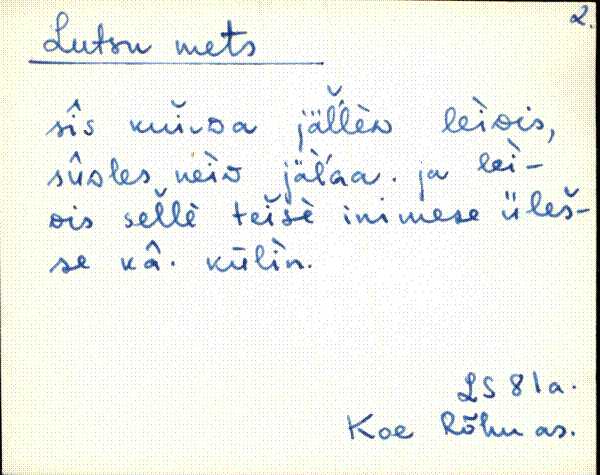 2.
Lutsu mets
sîs kuĭvᴅa jäl̆l̀èᴅ lèìᴅis,
sûsles nèìᴅ jäl̀aa. ja lèì-
ᴅis sel̆lè teĭsè inimese üles̆-
se kâ. külìn.
LS 81a.
Koe Rõhu as.